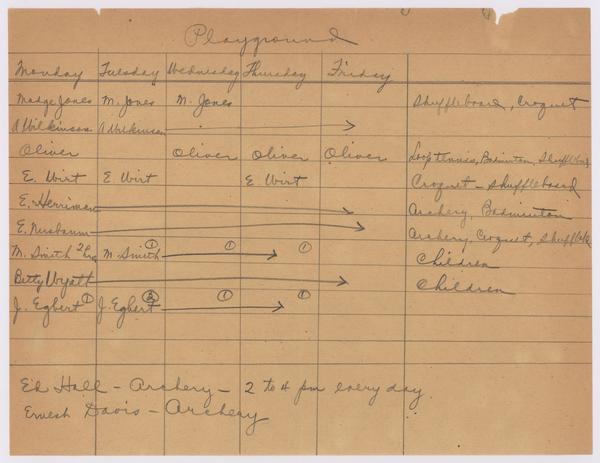 Playground
Monday Tuesday Wednesday Thursday Friday
Madge Jones M. Jones M. Jones Shuffleboard, Croquet
A Wilkinson A Wilkinson
Oliver Oliver Oliver Oliver Loop tennis, Badminton, Shuffleboard
E. Wirt E Wirt E. Wirt Croquet - Shuffleboard
E. Herriman Archery, Badminton
E. Nusbaum Archery, Croquet, Shuffleb
M. Smith M. Smith ① ① ① Children
Betty Wyatt Children
J. Egbert ① J. Egbert ② ① ①
Ed Hall - Archery - 2 to 4 pm every day.
Ernest Davis - Archery